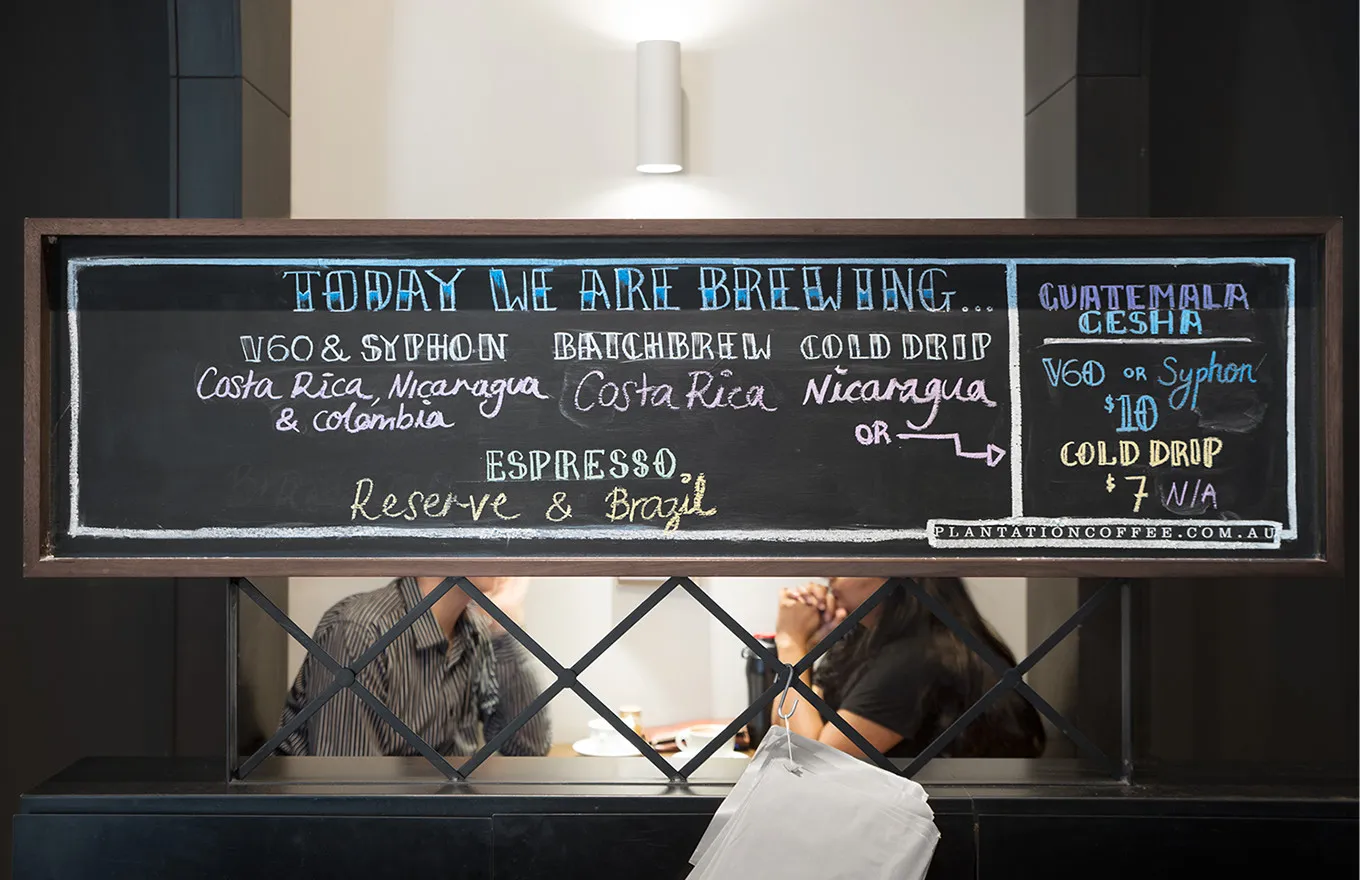 TODAY WE ARE BREWING...
V60 & SYPHON
Costa Rica, Nicaragua
& Colombia
BATCHBREW
Costa Rica
COLD DRIP
Nicaragua
OR
ESPRESSO
Reserve & Brazil
GUATEMALA
GESHA
V60 OR Syphon
$10
COLD DRIP
$7 N/A
PLANTATIONCOFFEE.COM.AU